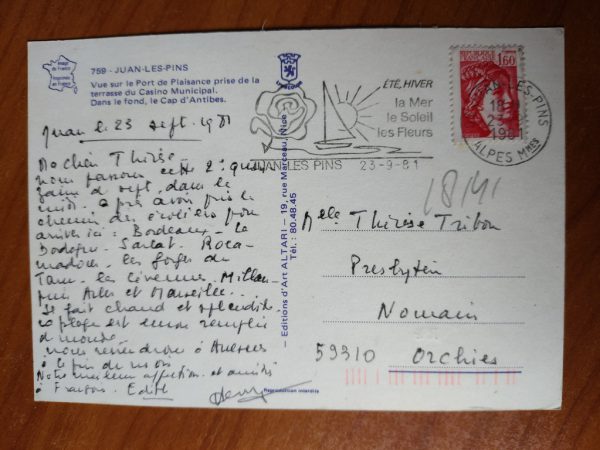 Image de France
Imprimée en France
759 - JUAN-LES-PINS
Vue sur le Port de Plaisance prise de la
terrasse du Casino Municipal.
Dans le fond, le Cap d'Antibes.
Juan le 23 sept. 1981
Ma chère Thérèse
nous passons cette 2e quin
zaine de sept. dans le
midi après avoir pris le
chemin des écoliers pour
arriver ici : Bordeaux - la
Dordogne - Sarlat - Roca-
madour - les gorges du
Tarn - les Cévennes - Millau
puis Arles et Marseille...
Il fait chaud et splendide
la plage est encore remplie
de monde
nous reviendrons à
à la fin du mois
Notre meilleure affection et amitiés
à François. Edith
ÉTÉ, HIVER
la Mer
le Soleil
les Fleurs
JUAN LES PINS 23-9-81
REPUBLIQUE FRANÇAISE
1,60
JUAN-LES-PINS
18
23
1981
ALPES Mmes
— Editions d'Art ALTARI — 19, rue Marceau, Nice
Tél.: 80.48.45
Melle Thérèse Tribou
Presbytère
Nomain
59310 Orchies
Reproduction interdite